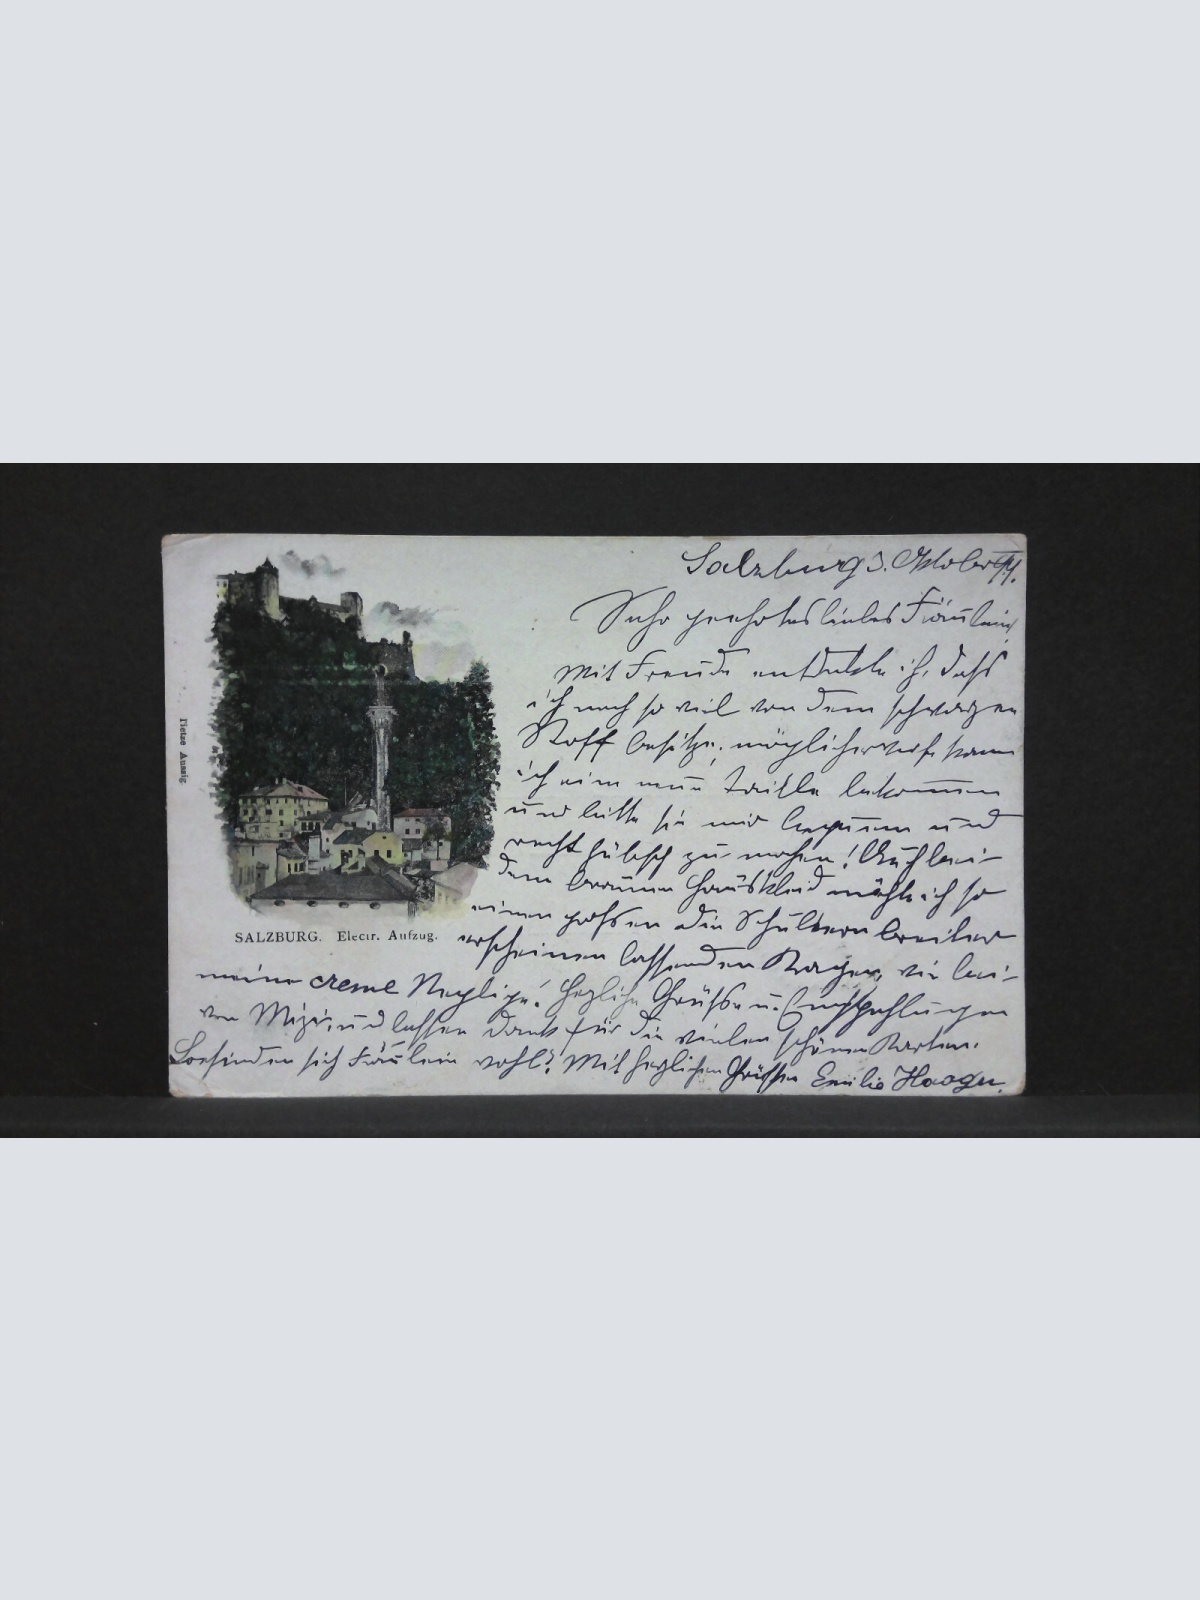 Salzburg 3. Oktober
Sehr geehrtes liebes Fräulein!
Mit Freude entdeckte ich, dass
ich noch so viel von dem schwarzen
Stoff besitze, möglicherweise kann
ich eine neue Taille bekommen
und bitte sie mir bequem und
recht hübsch zu machen! Auch bei
dem braunen Hauskleid möchte ich so
einen grossen die Schultern breiter
erscheinen lassenden Kragen, wie bei
meine creme Negligé! Herzliche Grüsse u. Empfehlungen
von Mizi und besten Dank für die vielen schönen Karten.
Befinden sich Fräulein wohl? Mit herzlichen Grüssen Emilie
SALZBURG. Electr. Aufzug.
Tietze Aussig